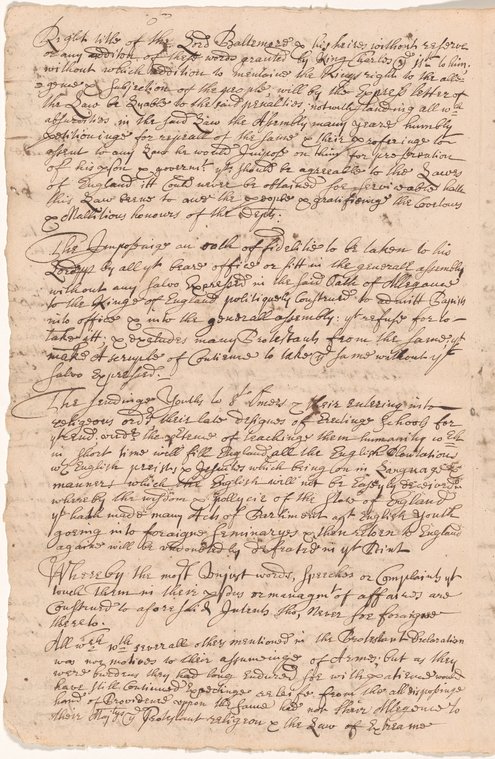 Right title of the Lord Baltemore & his heires without reserve
or any addition of these words granted by King Charles ye 1st to him,
without which addition to mentaine the Kings right to the alle-
gence & subjection of the people, will by the Express letter of
the Law be lyable to the said penalties, notwithstanding all wch
absurdities in the said Law the Assembly many yeares humbly
petitioninge for repeall of the same & their profferinge to
assent to any Law he would Impose on them for preservation
of his & governmt yt should be agreeable to the Lawes
of England itt Could never be obtained soe serviceable hath
this Law bene to awe the people & gratifieinge the
& Mallitious honours of the depts.
The Imposeinge an oath of fidelitie to be taken to his
Lordsp by all yt beare office or sitt in the generall assembly
without any Salvo Expressed in the said Oath of Allegance
to the Kinge of England politiquely Construed to admitt Papists
into office & into the generall assembly: yt refuse soe to
take itt & excludes many Protestants from the same yt
make A scruple of Contience to take ye same without yt
Salvo Expressed.
The sendinge Youths to St Omers & their entering into
religeous ordrs their late designes of Erectinge Schools for
yt end, undr the pretence of teachinge them humanity wch
in short time will fill England, all the English Plantations
wth English preists & Jesuites which being soe in Language &
manners which the English will not be Easyly
whereby the wisdom & pollycie of the State of England
yt hath made many Acts of Parliment agt English youth
going into foraigne Seminaryes & then return to England
againe will be undoubtedly defeated in yt point
Whereby the most Unjust words, Speeches or Complaints yt
touch them in there or managmt of affaires are
Construed to aforesaid Intents tho, Never soe foraigne
thereto.
All wch wth severall others mentioned in the Protestant Declaration
was not motives to their assumeinge of Armes, but as they
were burdens they had long endured soe with patience would
have still Continued & releife from the all disposinge
hand of Providence upon the same had not their Allegence to
their Majtyes ye Protestant religeon & the Law of Extreame